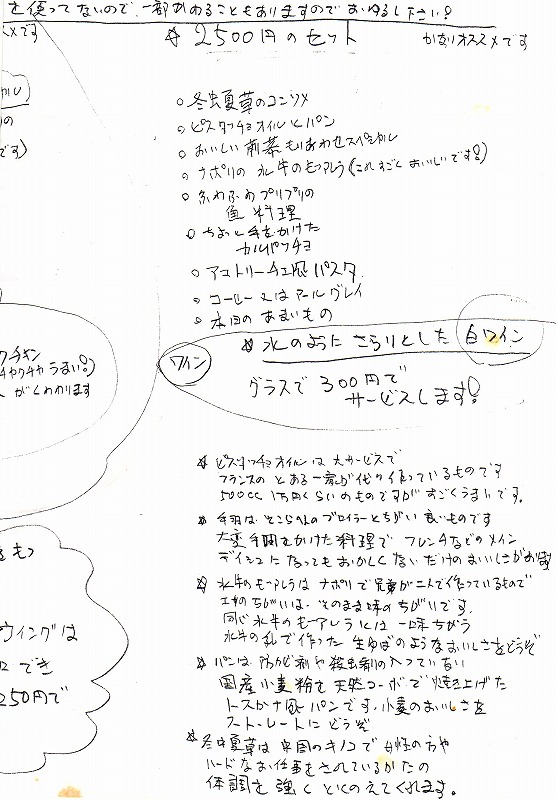 を使ってないので、一部かわることもありますのでおゆるし下さい!
メです
☆ 2500円のセット
かなりオススメです
○ 冬虫夏草のコンソメ
○ ピスタッチョオイルとパン
○ おいしい前菜もりあわせスペシャル
○ ナポリの水牛のモッツァレラ(これすごくおいしいです!)
○ ふわふわプリプリの
魚料理
○ ちょっと手をかけた
カルパッチョ
○ アマトリーチェ風パスタ
○ コーヒー又はアールグレイ
○ 本日のあまいもの
ワイン
☆ 水のようにさらりとした 白ワイン
グラスで300円で
サービスします!
クチャクチャうまい!)
がくわかります
☆ ピスタッチョオイルは大サービスで
フランスのとある一家が代々作っているものです
500cc 1万円くらいのものですがすごくうまいです。
☆ 手羽は、そこらへんのブロイラーとちがい良いものです
大変手間をかけた料理で フレンチなどのメイン
ディッシュになってもおかしくないだけのおいしさがあります
☆ 水牛のモッツァレラはナポリで兄弟が二人で作っているもので
工場のちがいは、そのまま味のちがいです。
同じ水牛のモッツァレラとは一味ちがう
水牛の乳で作った生ゆばのようなおいしさをどうぞ
☆ パンは防かび剤や殺虫剤の入っていない
国産小麦粉を天然コーボで焼き上げた
トスカナ風パンです。小麦のおいしさを
ストレートにどうぞ
をもつ
ウイングは
ロでき
250円で
☆ 冬虫夏草は中国のキノコで女性の方や
ハードなお仕事をされているかたの
体調を強くととのえてくれます。